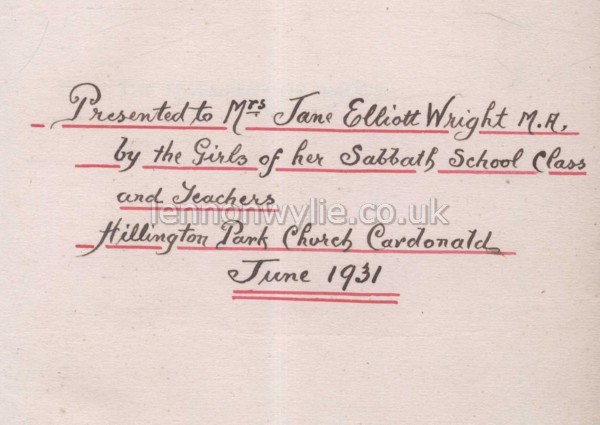 Presented to Mrs Jane Elliott Wright M.A,
by the Girls of her Sabbath School Class
and Teachers
lennonwylie.co.uk
Hillington Park Church Cardonald
June 1931